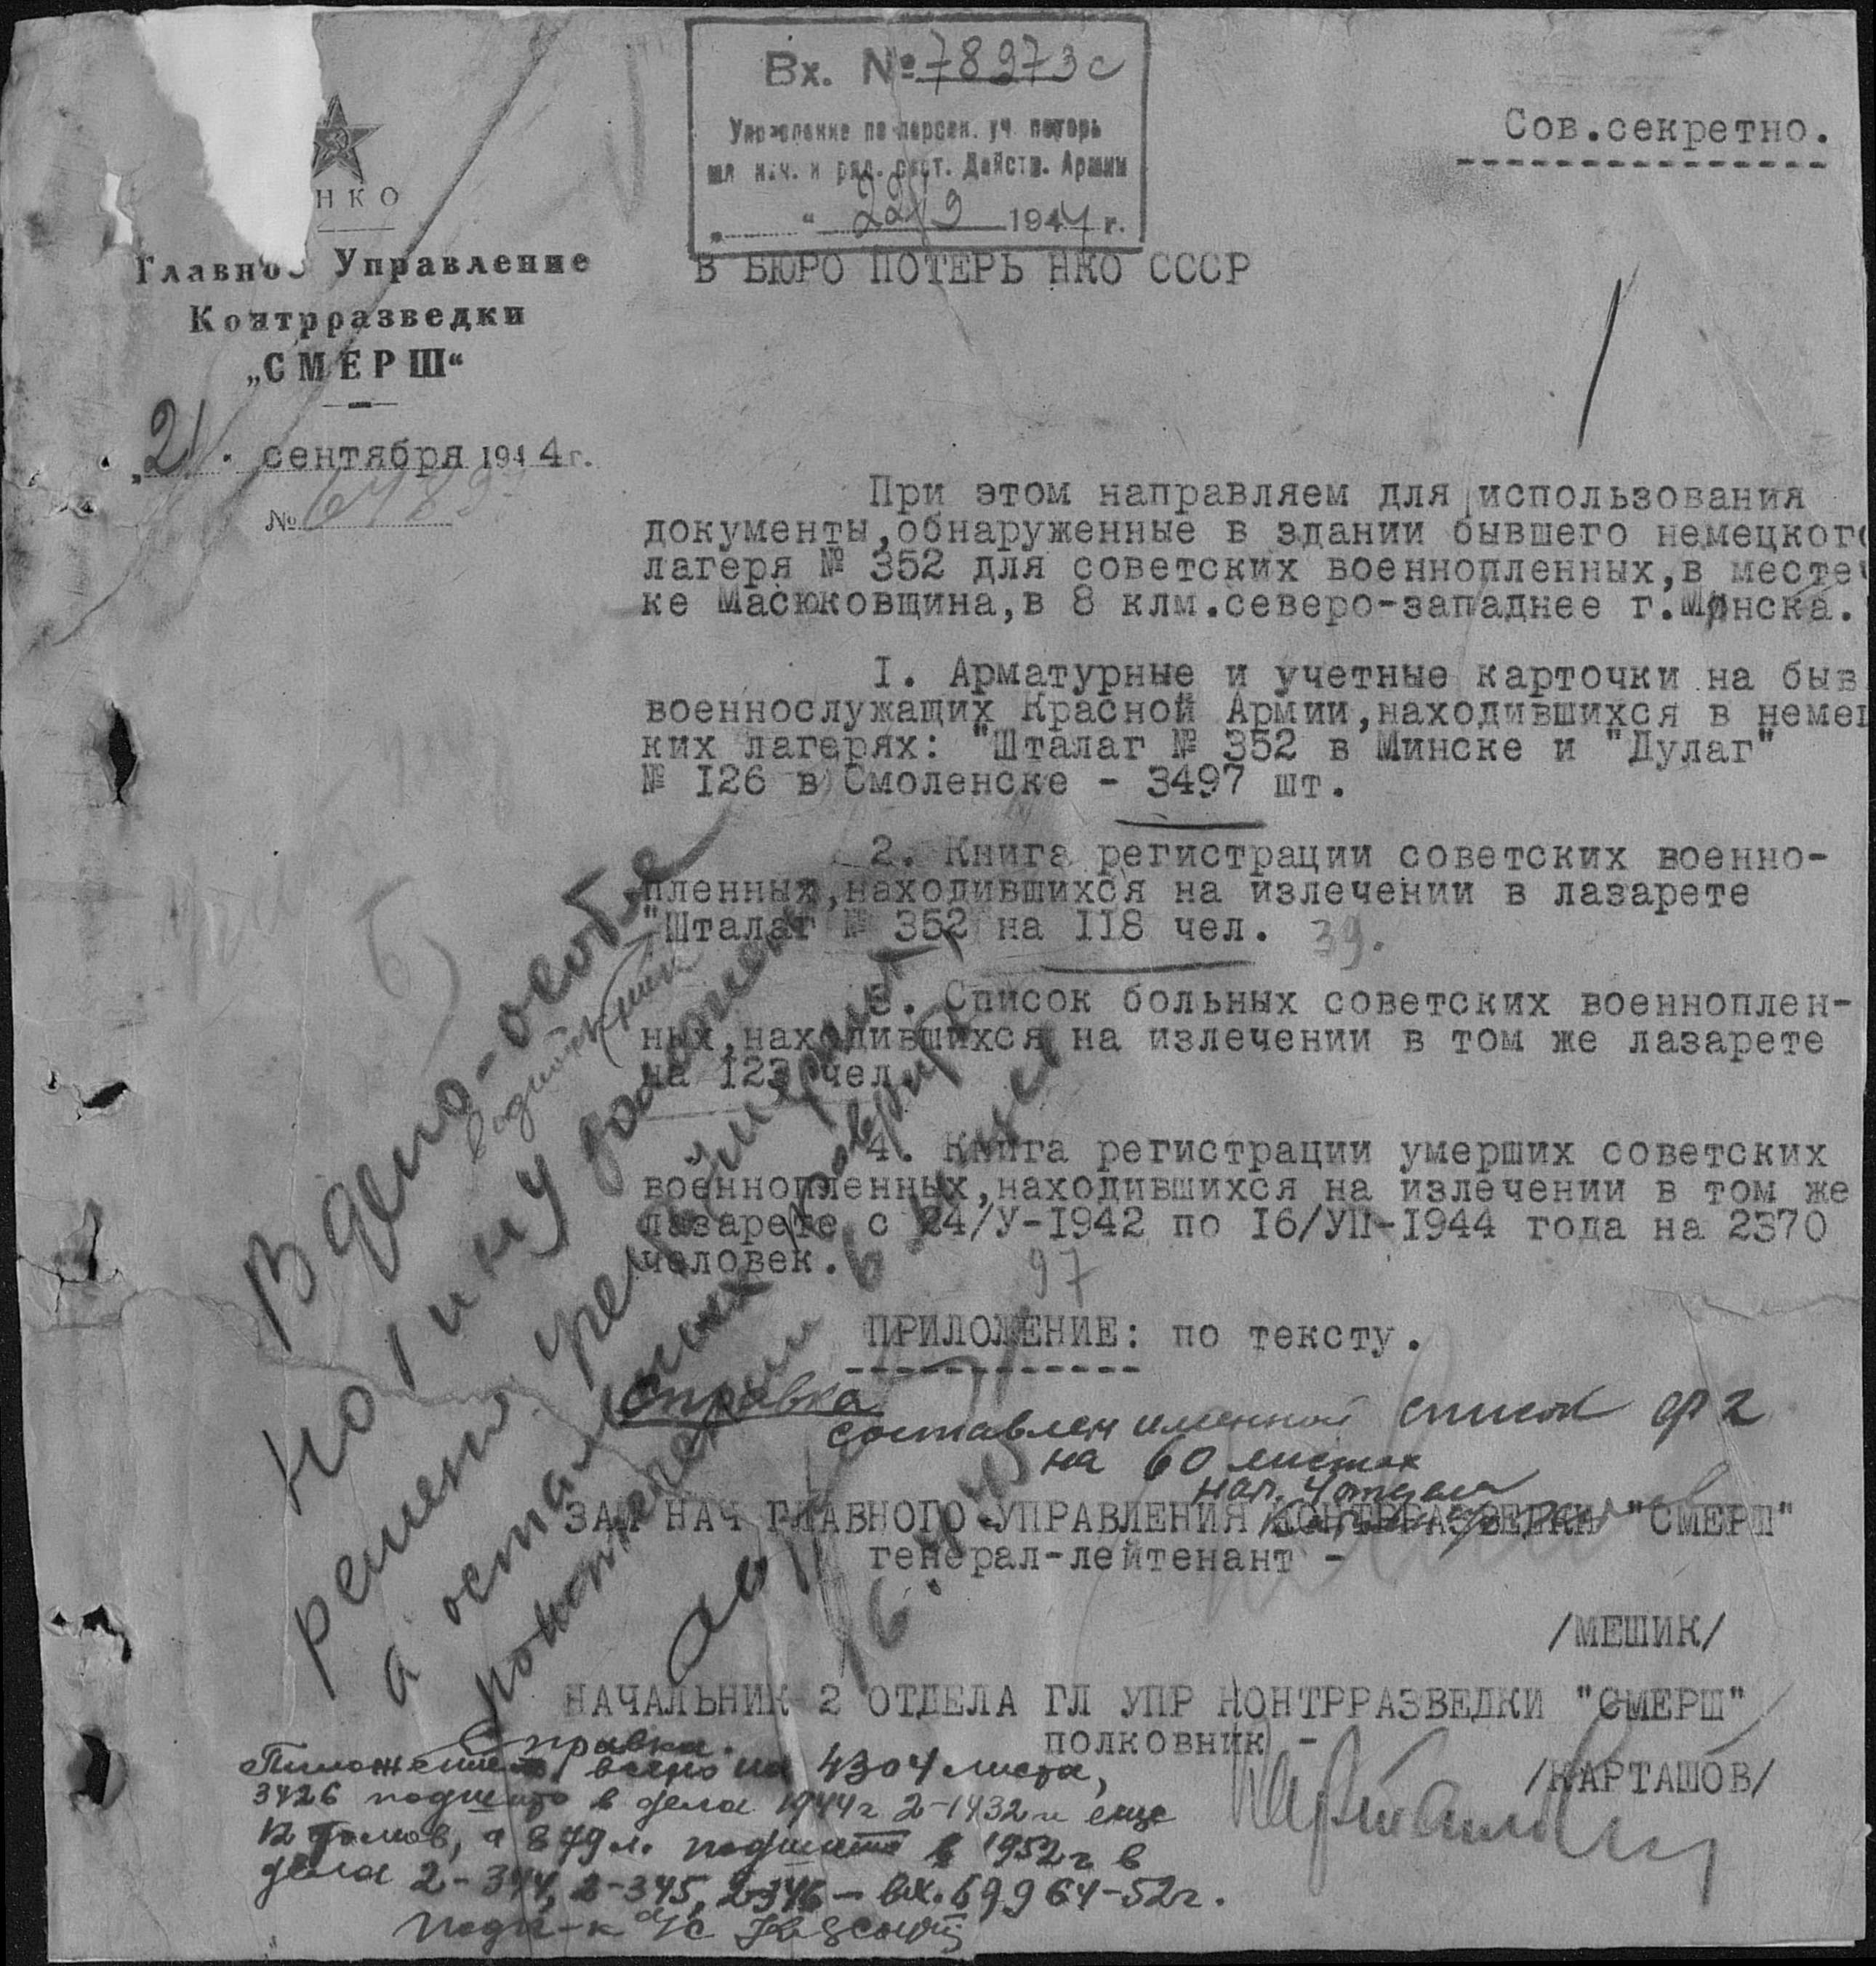 Вх. № 78973с
Управление по персон. уч. потерь
мл. нач. и ряд. сост. Действ. Армии
" 22/9 1944 г.
Сов.секретно.
НКО
Главное Управление
Контрразведки
„СМЕРШ“
„21. сентября 1944г.
№
В БЮРО ПОТЕРЬ НКО СССР
При этом направляем для использования
документы,обнаруженные в здании бывшего немецкого
лагеря № 352 для советских военнопленных,в местеч
ке Масюковщина,в 8 клм.северо-западнее г.Минска.
I. Арматурные и учетные карточки на быв
военнослужащих Красной Армии,находившихся в немец
ких лагерях: "Шталаг № 352 в Минске и "Дулаг"
№ I26 в Смоленске - 3497 шт.
2. Книга регистрации советских военно-
пленных,находившихся на излечении в лазарете
"Шталаг № 352 на II8 чел. 39.
3. Список больных советских военноплен-
ных,находившихся на излечении в том же лазарете
на I23 чел.
4. Книга регистрации умерших советских
военнопленных,находившихся на излечении в том же
лазарете с 24/У-I942 по I6/УП-I944 года на 2370
человек. 97
ПРИЛОЖЕНИЕ: по тексту.
Справка
составлен именной список ф 2
на 60 листах
нач. 4 отдела
ЗАМ НАЧ ГЛАВНОГО УПРАВЛЕНИЯ КОНТРРАЗВЕДКИ "СМЕРШ"
генерал-лейтенант -
/МЕШИК/
НАЧАЛЬНИК 2 ОТДЕЛА ГЛ УПР КОНТРРАЗВЕДКИ "СМЕРШ"
полковник -
/КАРТАШОВ/
В дело-особое
а остальных
Справка.
всего на 4304 листа,
3426 подшито в дела 1944г 2-1432 и еще
12 томов, а 879 л. подшито в 1952г в
дела 2-344, 2-345, 2-346 - вх. 69964-52г.